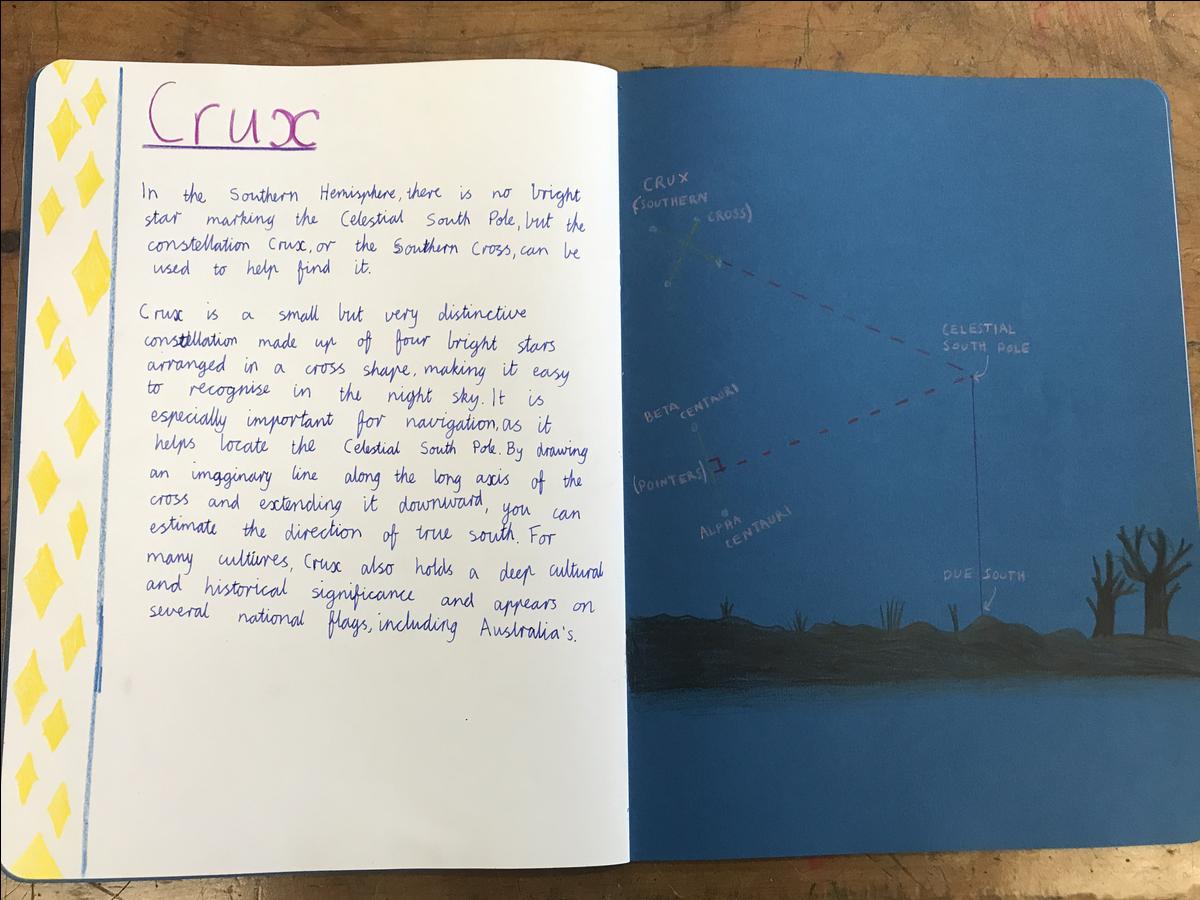 Crux
In the Southern Hemisphere, there is no bright
star marking the Celestial South Pole, but the
constellation Crux, or the Southern Cross, can be
used to help find it.
Crux is a small but very distinctive
constellation made up of four bright stars
arranged in a cross shape, making it easy
to recognise in the night sky. It is
especially important for navigation, as it
helps locate the Celestial South Pole. By drawing
an imaginary line along the long axis of the
cross and extending it downward, you can
estimate the direction of true south. For
many cultures, Crux also holds a deep cultural
and historical significance and appears on
several national flags, including Australia's.
CRUX
(SOUTHERN
CROSS)
CELESTIAL
SOUTH POLE
BETA
CENTAURI
(POINTERS)
ALPHA
CENTAURI
DUE SOUTH